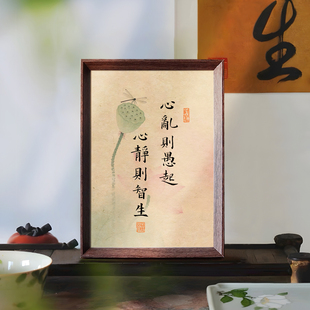 心亂則愚起
心靜則智生
生